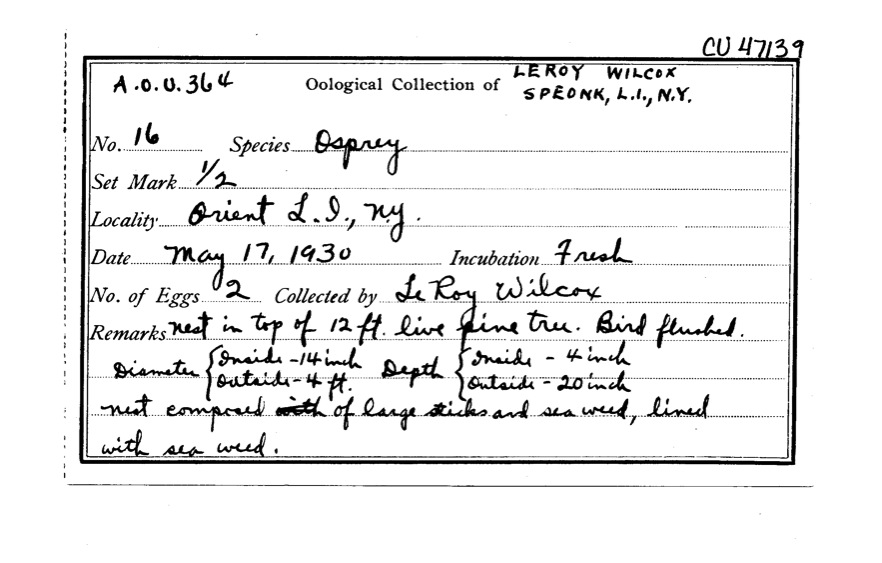 CU 47139
A.O.U. 364 Oological Collection of LEROY WILCOX
SPEONK, L.I., N.Y.
No. 16 Species Osprey
Set Mark 1/2
Locality Orient L.I., N.Y.
Date May 17, 1930 Incubation Fresh
No. of Eggs 2 Collected by LeRoy Wilcox
Remarks nest in top of 12 ft. live pine tree. Bird flushed.
Diameter { Inside - 14 inch Depth { Inside - 4 inch
Outside - 4 ft. Outside - 20 inch
nest composed with of large sticks and sea weed, lined
with sea weed.